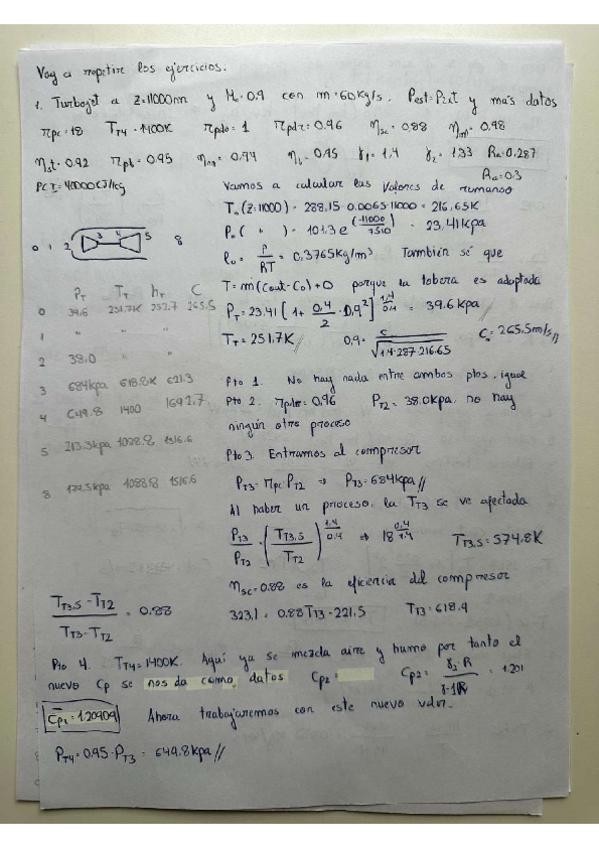 Voy a repetir los ejercicios.
1. Turbojet a z=11000m y M₀=0.9 con ṁ=60kg/s. Pest=Pext y más datos
πpc=18 TT4=1400K πpdo=1 πpdr=0.96 ηsc=0.88 ηm=0.98
ηst=0.92 πpb=0.95 ηb=0.95 γ1=1.4 γ2=1.33 Ra=0.287
Ra=0.3
PCI=40000kJ/kg
Vamos a calcular las valores de remanso
T₀(z=11000)=288.15-0.0065·11000=216.65K
P₀( " )=101.3e^(-11000/7510)=23.41kpa
ρ₀=P/RT=0.3765kg/m³ También sé que
T=ṁ(Cout-C₀)+0 porque la tobera es adaptada
PT=23.41[1+0.4/2·0.9²]^(1.4/0.4)=39.6kpa//
TT=251.7K// 0.9=c/√(1.4·287·216.65) C₀=265.5m/s//
0 1 2 3 4 5 8
PT TT hT C
0 39.6 251.7K 252.7 265.5
1 " " "
2 38.0 " "
3 684kpa 618.8K 621.3
4 649.8 1400 1692.7
5 213.3kpa 1088.8 1316.6
8 1088.8 1316.6
Pto 1. No hay nada entre ambos ptos, igual
Pto 2. πpdr=0.96 PT2=38.0kpa, no hay
ningún otro proceso
Pto 3. Entramos al compresor
PT3=πpc·PT2 ⇒ PT3=684kpa//
Al haber un proceso, la TT3 se ve afectada
PT3/PT2=(TT3,s/TT2)^(1.4/0.4) ⇒ 18^(0.4/1.4) TT3,s=574.8K
ηsc=0.88 es la eficiencia del compresor
(TT3,s-TT2)/(TT3-TT2)=0.88 323.1=0.88TT3-221.5 TT3=618.9
Pto 4. TT4=1400K. Aquí ya se mezcla aire y humo por tanto el
nuevo Cp se nos da como datos Cp2= Cp2=γ2·R/(γ-1) =1.201
Cp2=1.20909 Ahora trabajaremos con este nuevo valor.
PT4=0.95·PT3=649.8kpa//